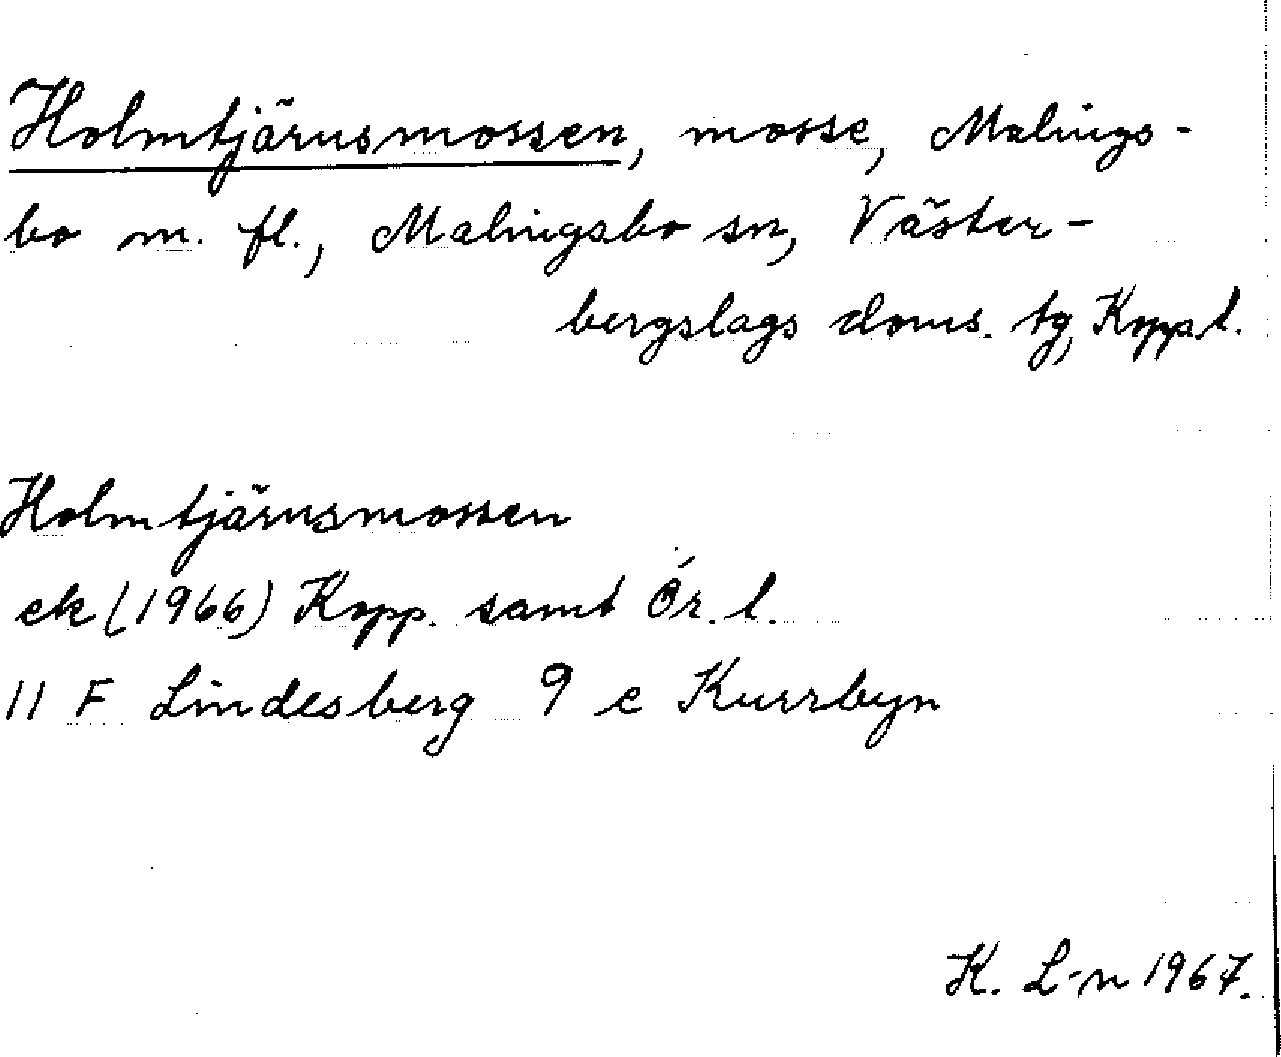 Holmtjärnsmossen, mosse, Malings-
bo m. fl., Malingsbo sn, Väster-
bergslags doms. tg, Kopp.l.
Holmtjärnsmossen
ek (1966) Kopp. samt Ör. l.
11 F Lindesberg 9 e Kurrbyn
K. L-n 1967.